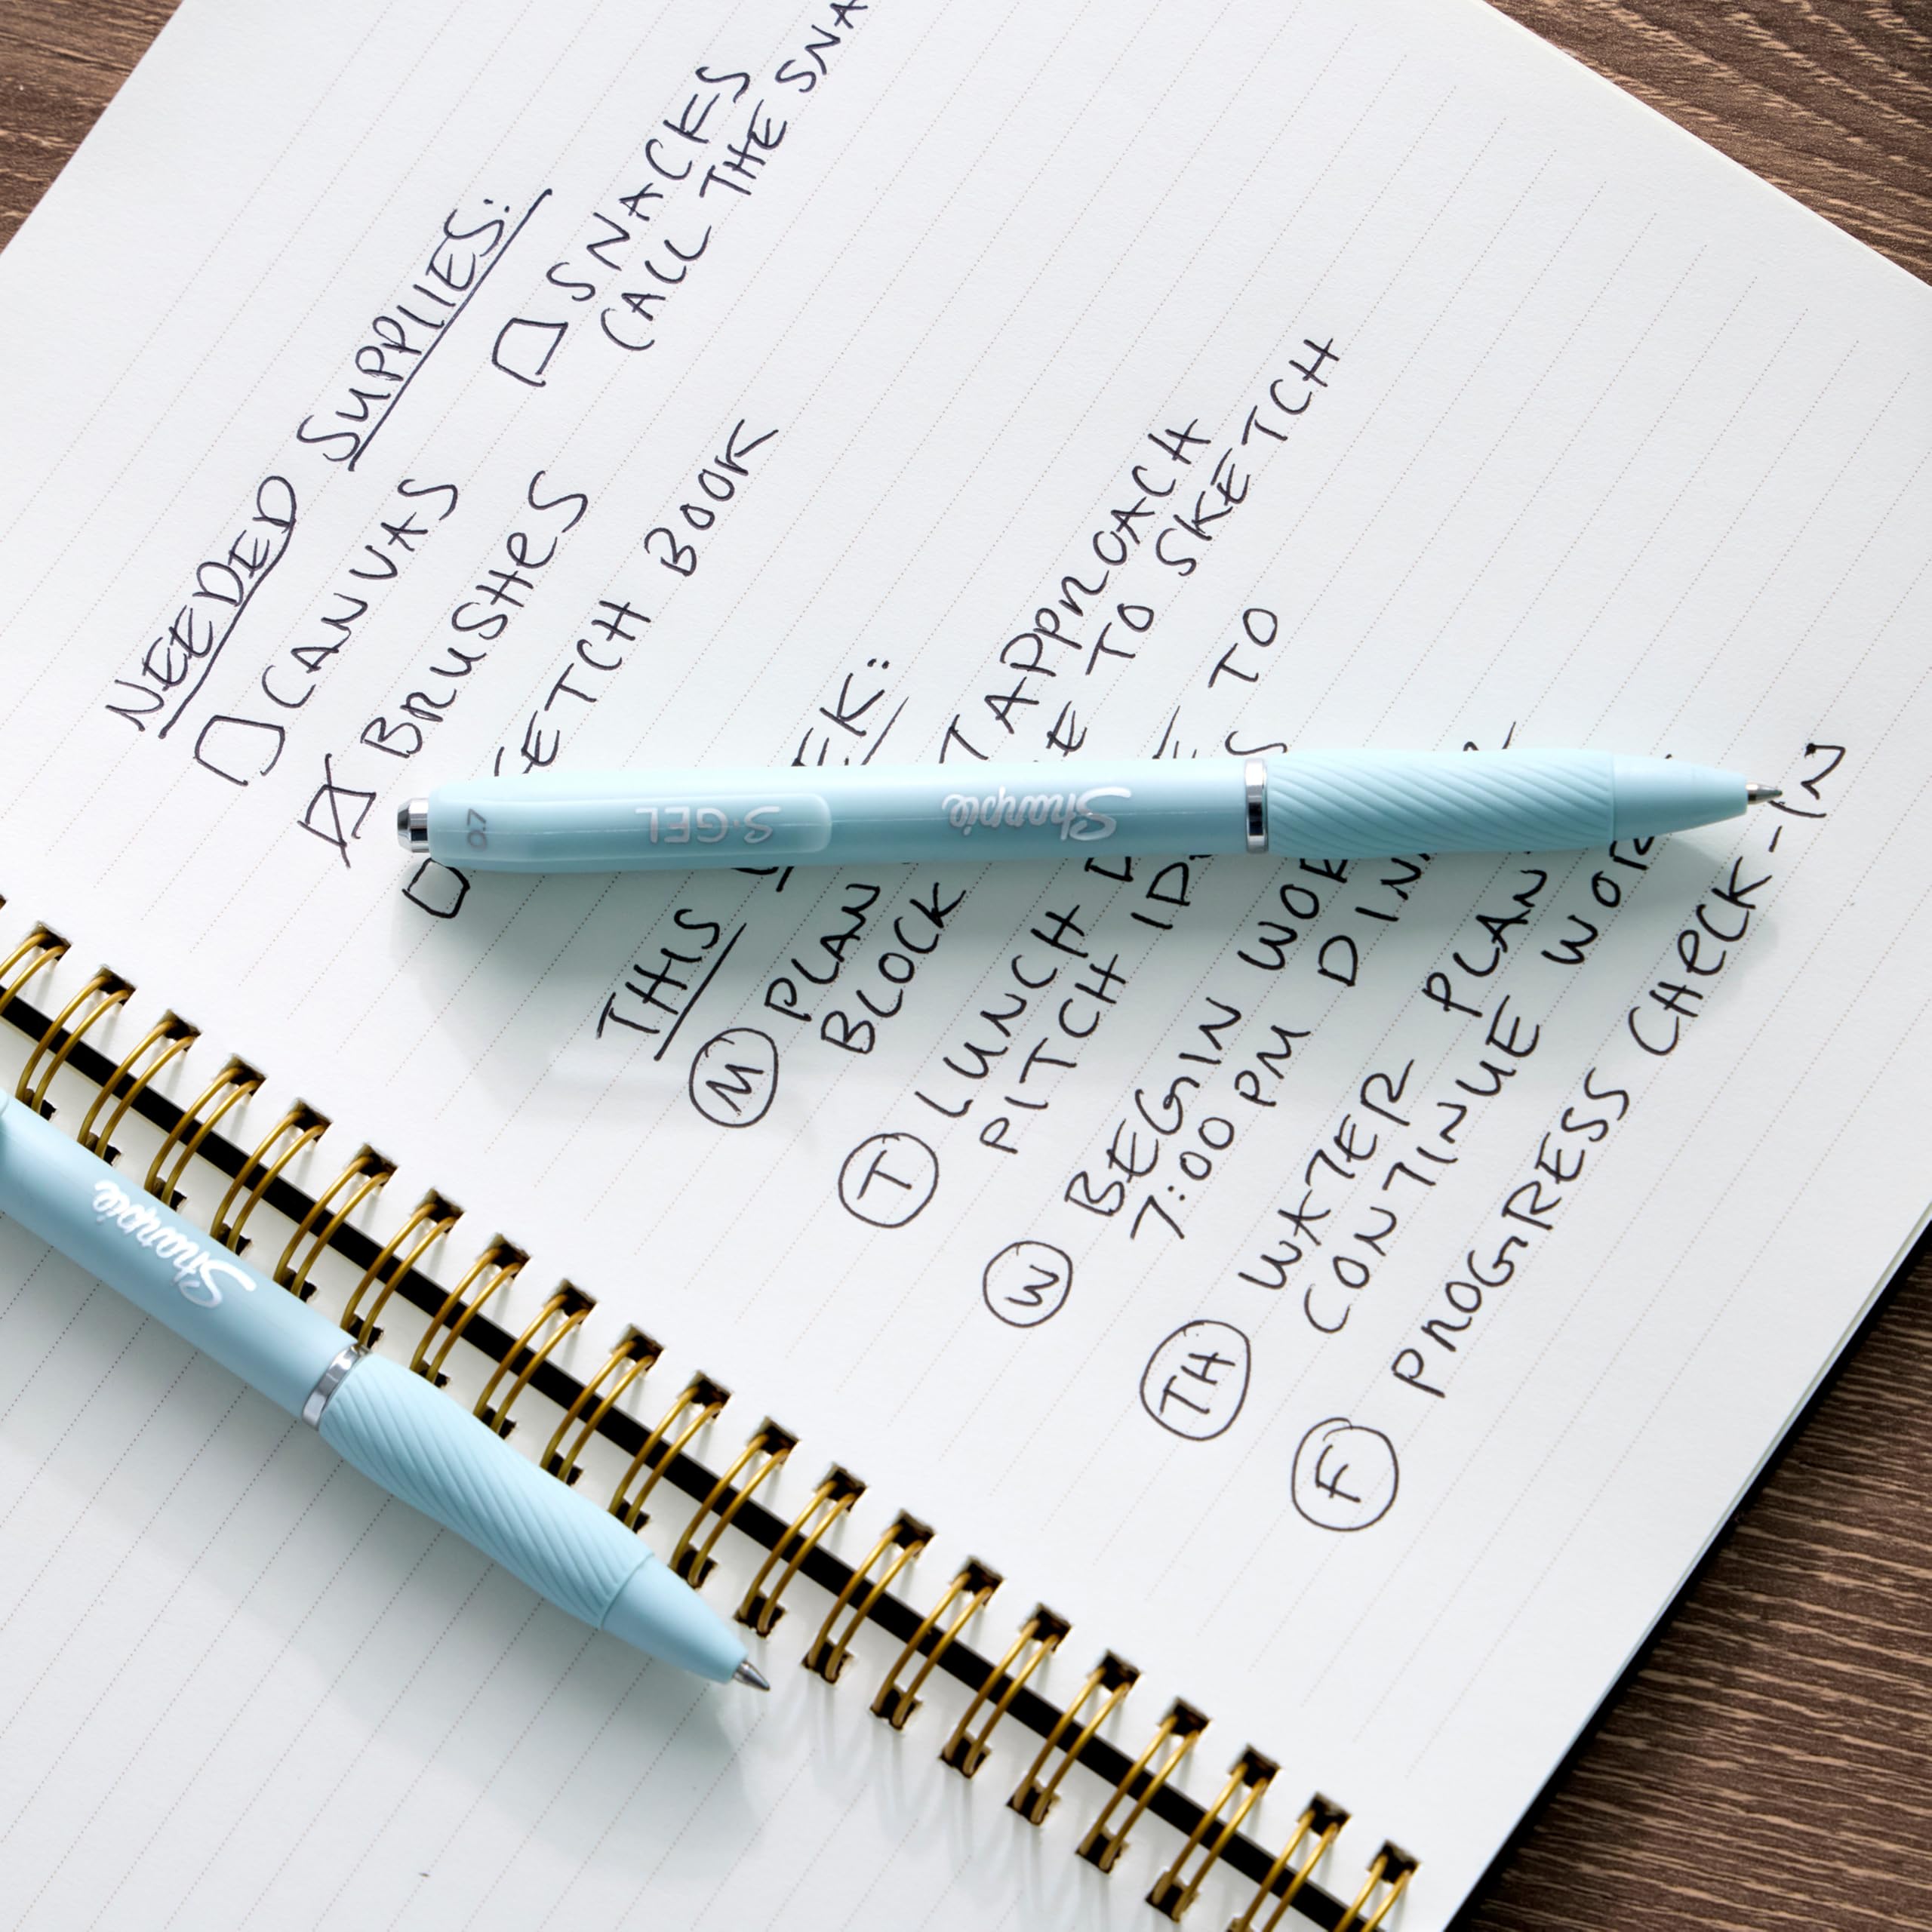 NEEDED SUPPLIES:
CANVAS
SNACKS
BRUSHES
CALL THE
BOOK
THIS
M PLAN APPROACH
BLOCK TO SKETCH
T LUNCH
PITCH TO
W BEGIN
7:00 PM
TH WATER
CONTINUE
F PROGRESS CHECK-IN
0.7 S·GEL Sharpie
Sharpie